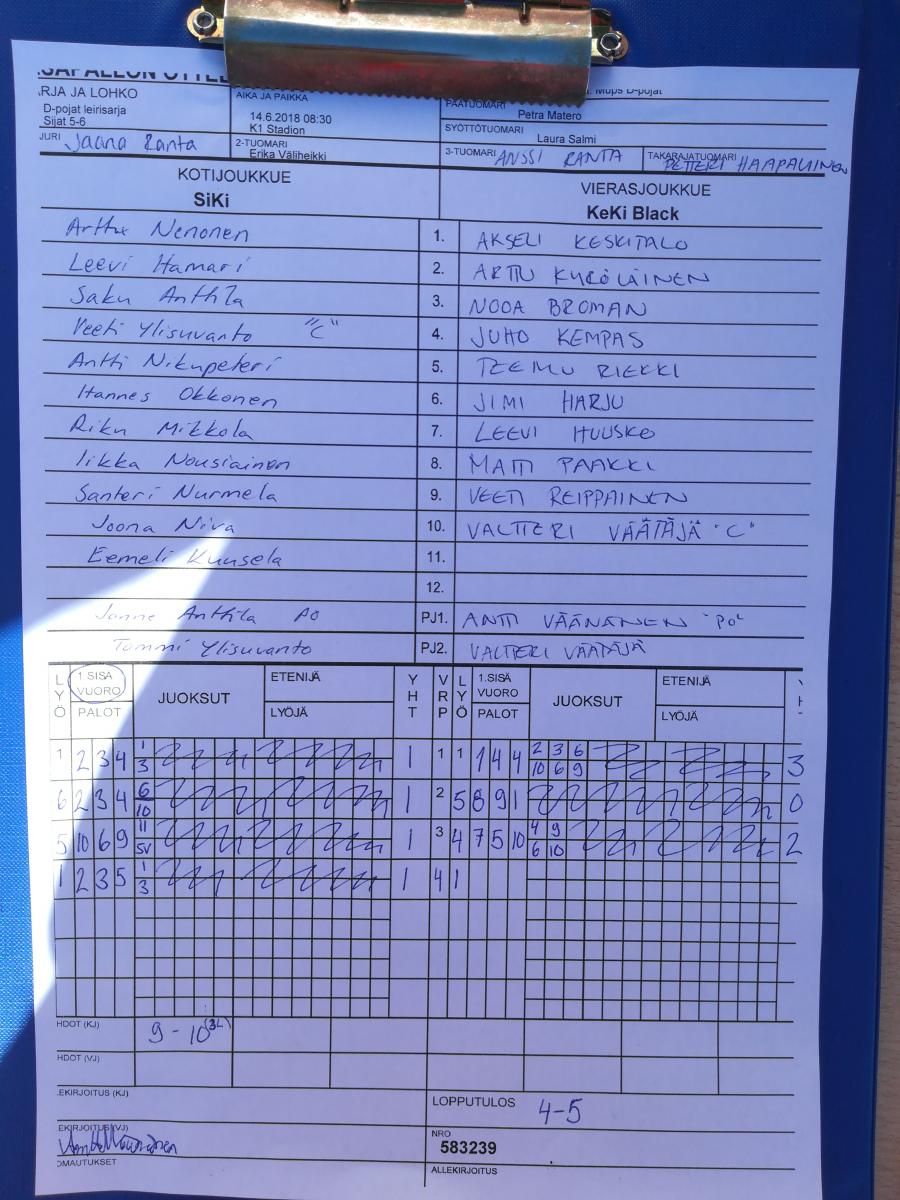 .SAPALLON OTTEL
.RJA JA LOHKO
D-pojat leirisarja
Sijat 5-6
JURI Jaana Ranta
AIKA JA PAIKKA
14.6.2018 08:30
K1 Stadion
2-TUOMARI
Erika Väliheikki
Mups D-pojat
PÄÄTUOMARI
Petra Matero
SYÖTTÖTUOMARI
Laura Salmi
3-TUOMARI ANSSI RANTA
TAKARAJATUOMARI
PETTERI HAAPALAINEN
KOTIJOUKKUE
SiKi
VIERASJOUKKUE
KeKi Black
Arttu Nenonen 1. AKSELI KESKITALO
Leevi Hamari 2. ARTTU KYRÖLÄINEN
Saku Anttila 3. NOOA BROMAN
Veeti Ylisuvanto "C" 4. JUHO KEMPAS
Antti Nikupeteri 5. TEEMU RIEKKI
Hannes Okkonen 6. JIMI HARJU
Riku Mikkola 7. LEEVI HUUSKO
Iikka Nousiainen 8. MATTI PAAKKI
Santeri Nurmela 9. VEETI REIPPAINEN
Joona Niva 10. VALTTERI VÄÄTÄJÄ "C"
Eemeli Kuusela 11.
12.
Janne Anttila PO PJ1. ANTTI VÄÄNÄNEN "PO"
Tommi Ylisuvanto PJ2. VALTTERI VÄÄTÄJÄ
LYÖ 1.SISÄ VUORO PALOT JUOKSUT ETENIJÄ LYÖJÄ YHT VRP LYÖ 1.SISÄ VUORO PALOT JUOKSUT ETENIJÄ LYÖJÄ
1 2 3 4 1 1 1 1 4 4 2 3 6 3
3 10 6 9
6 2 3 4 6 1 2 5 8 9 1 0
10
5 10 6 9 11 1 3 4 7 5 10 4 9 2
SV 6 10
1 2 3 5 1 1 4 1
3
HDOT (KJ) 9 - 10 (3L)
HDOT (VJ)
.EKIRJOITUS (KJ)
LOPPUTULOS 4-5
EKIRJOITUS (VJ)
NRO
583239
OMAUTUKSET
ALLEKIRJOITUS